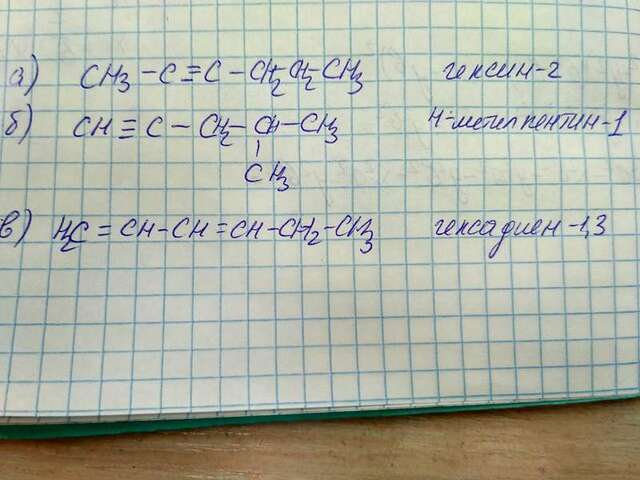 а) CH3 – C ≡ C – CH2 CH2 – CH3 гексин-2
б) CH ≡ C – CH2 – CH – CH3 4-метилпентин-1
CH3
в) H2C = CH – CH = CH – CH2 – CH3 гексадиен-1,3